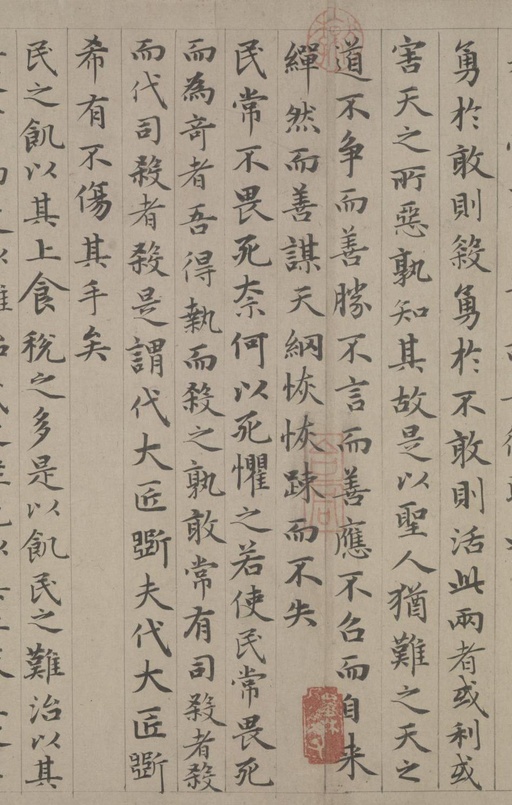 勇於敢則殺勇於不敢則活此兩者或利或
害天之所惡孰知其故是以聖人猶難之天之
道不爭而善勝不言而善應不召而自来
繟然而善謀天網恢恢踈而不失
民常不畏死柰何以死懼之若使民常畏死
而為奇者吾得執而殺之孰敢常有司殺者殺
而代司殺者殺是謂代大匠斲夫代大匠斲
希有不傷其手矣
民之飢以其上食稅之多是以飢民之難治以其